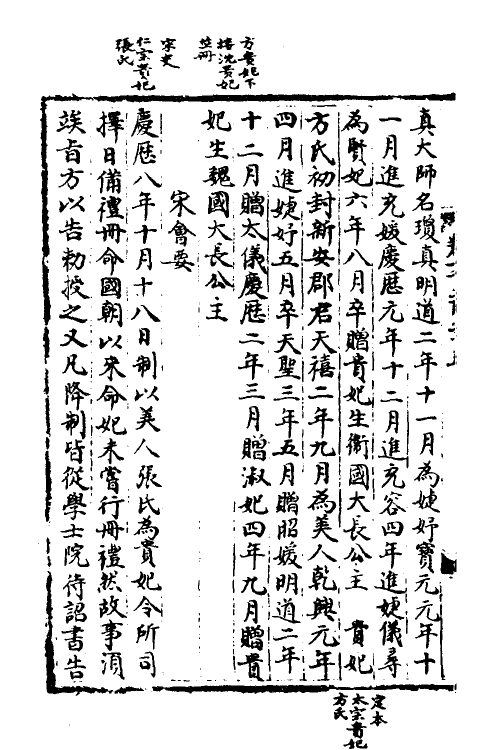 真大師名瓊真明道二年十一月為婕妤寶元元年十
一月進充媛慶曆元年十二月進充容四年進婕儀尋
為賢妃六年八月卒贈貴妃生衞國大長公主 貴妃
方氏初封新安郡君天禧二年九月為美人乾興元年
四月進婕妤五月卒天聖三年五月贈昭媛明道二年
十二月贈太儀慶曆二年三月贈淑妃四年九月贈貴
妃生魏國大長公主
宋會要
慶曆八年十月十八日制以美人張氏為貴妃令所司
擇日備禮冊命國朝以來命妃未嘗行冊禮然故事須
竢旨方以告勑授之又凡降制皆從學士院待詔書告
方貴妃下
接沈貴妃
並冊
宋史
仁宗貴妃
張氏
定本
太宗貴妃
方氏